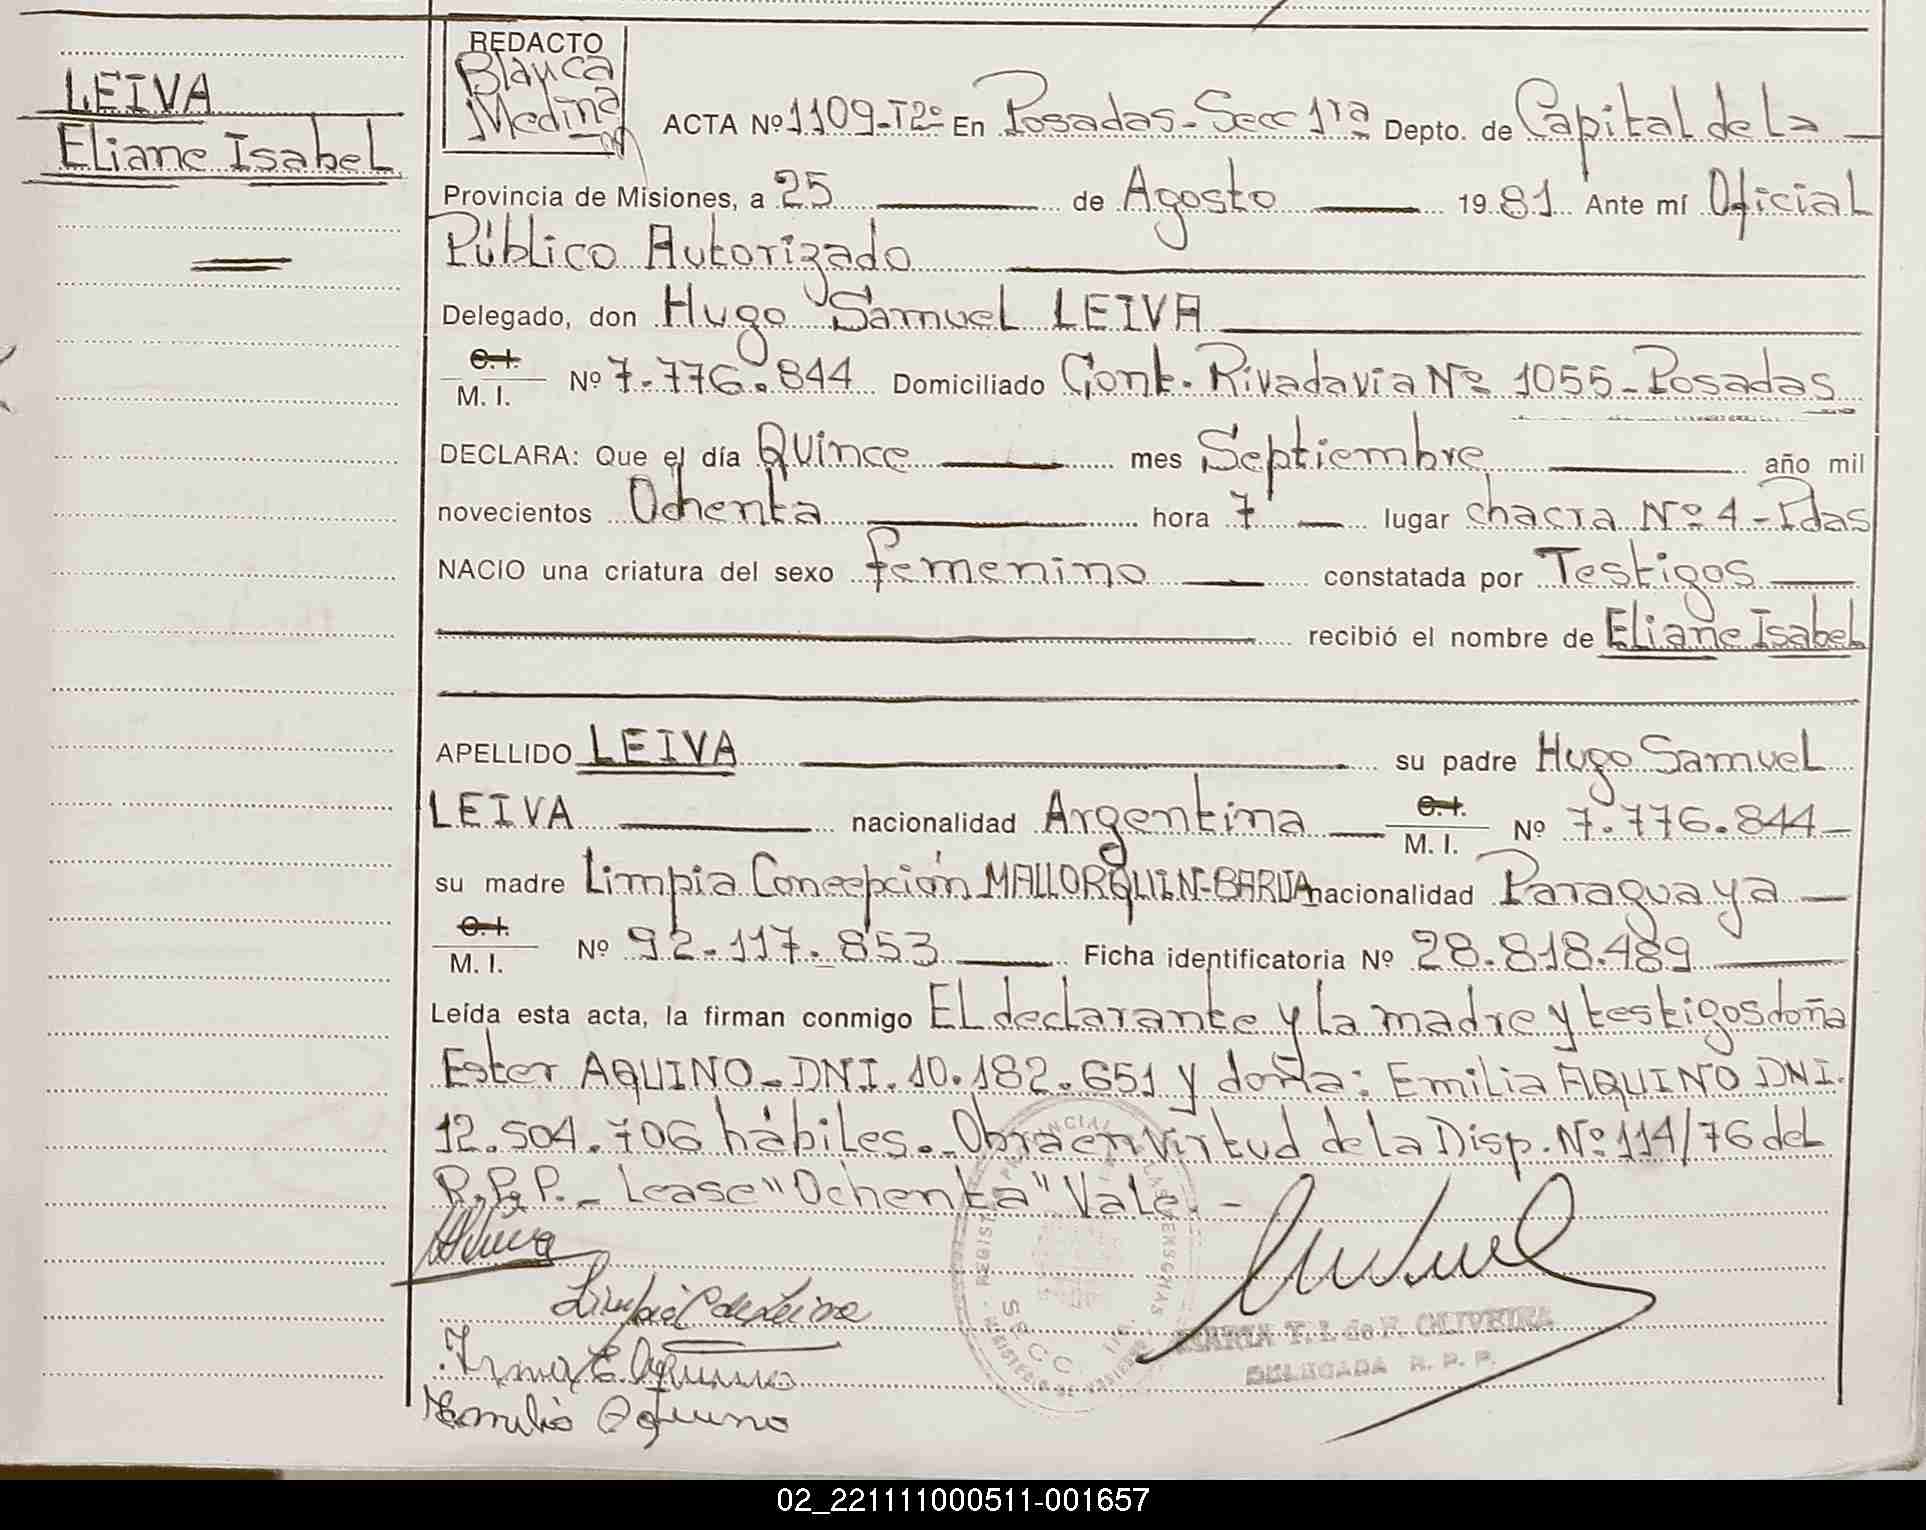 LEIVA
Eliane Isabel
REDACTO
Blanca
Medina
ACTA Nº 1109-T2º En Posadas-Secc 1ra Depto. de Capital de la
Provincia de Misiones, a 25 de Agosto 1981 Ante mí Oficial
Público Autorizado
Delegado, don Hugo Samuel LEIVA
C.I.
M. I. Nº 7.776.844 Domiciliado Cont. Rivadavia Nº 1055-Posadas
DECLARA: Que el día Quince mes Septiembre año mil
novecientos Ochenta hora 7 lugar chacra Nº 4-Pdas
NACIO una criatura del sexo femenino constatada por Testigos
recibió el nombre de Eliane Isabel
APELLIDO LEIVA su padre Hugo Samuel
LEIVA nacionalidad Argentina C.I. M. I. Nº 7.776.844
su madre Limpia Concepción MALLORQUIN-BARUA nacionalidad Paraguaya
C.I.
M. I. Nº 92.117.853 Ficha identificatoria Nº 28.818.489
Leída esta acta, la firman conmigo El declarante y la madre y testigos doña
Ester AQUINO-DNI.10.182.651 y doña: Emilia AQUINO DNI.
12.504.706 hábiles.-Obra en virtud de la Disp. Nº 114/76 del
R.P.P.- Lease "Ochenta" Vale.-
Limpia C de Leiva
Irma E. Aquino
Emilia Aquino
MARIA T. I. de F. OLIVEIRA
DELEGADA R. P. P.
02_221111000511-001657